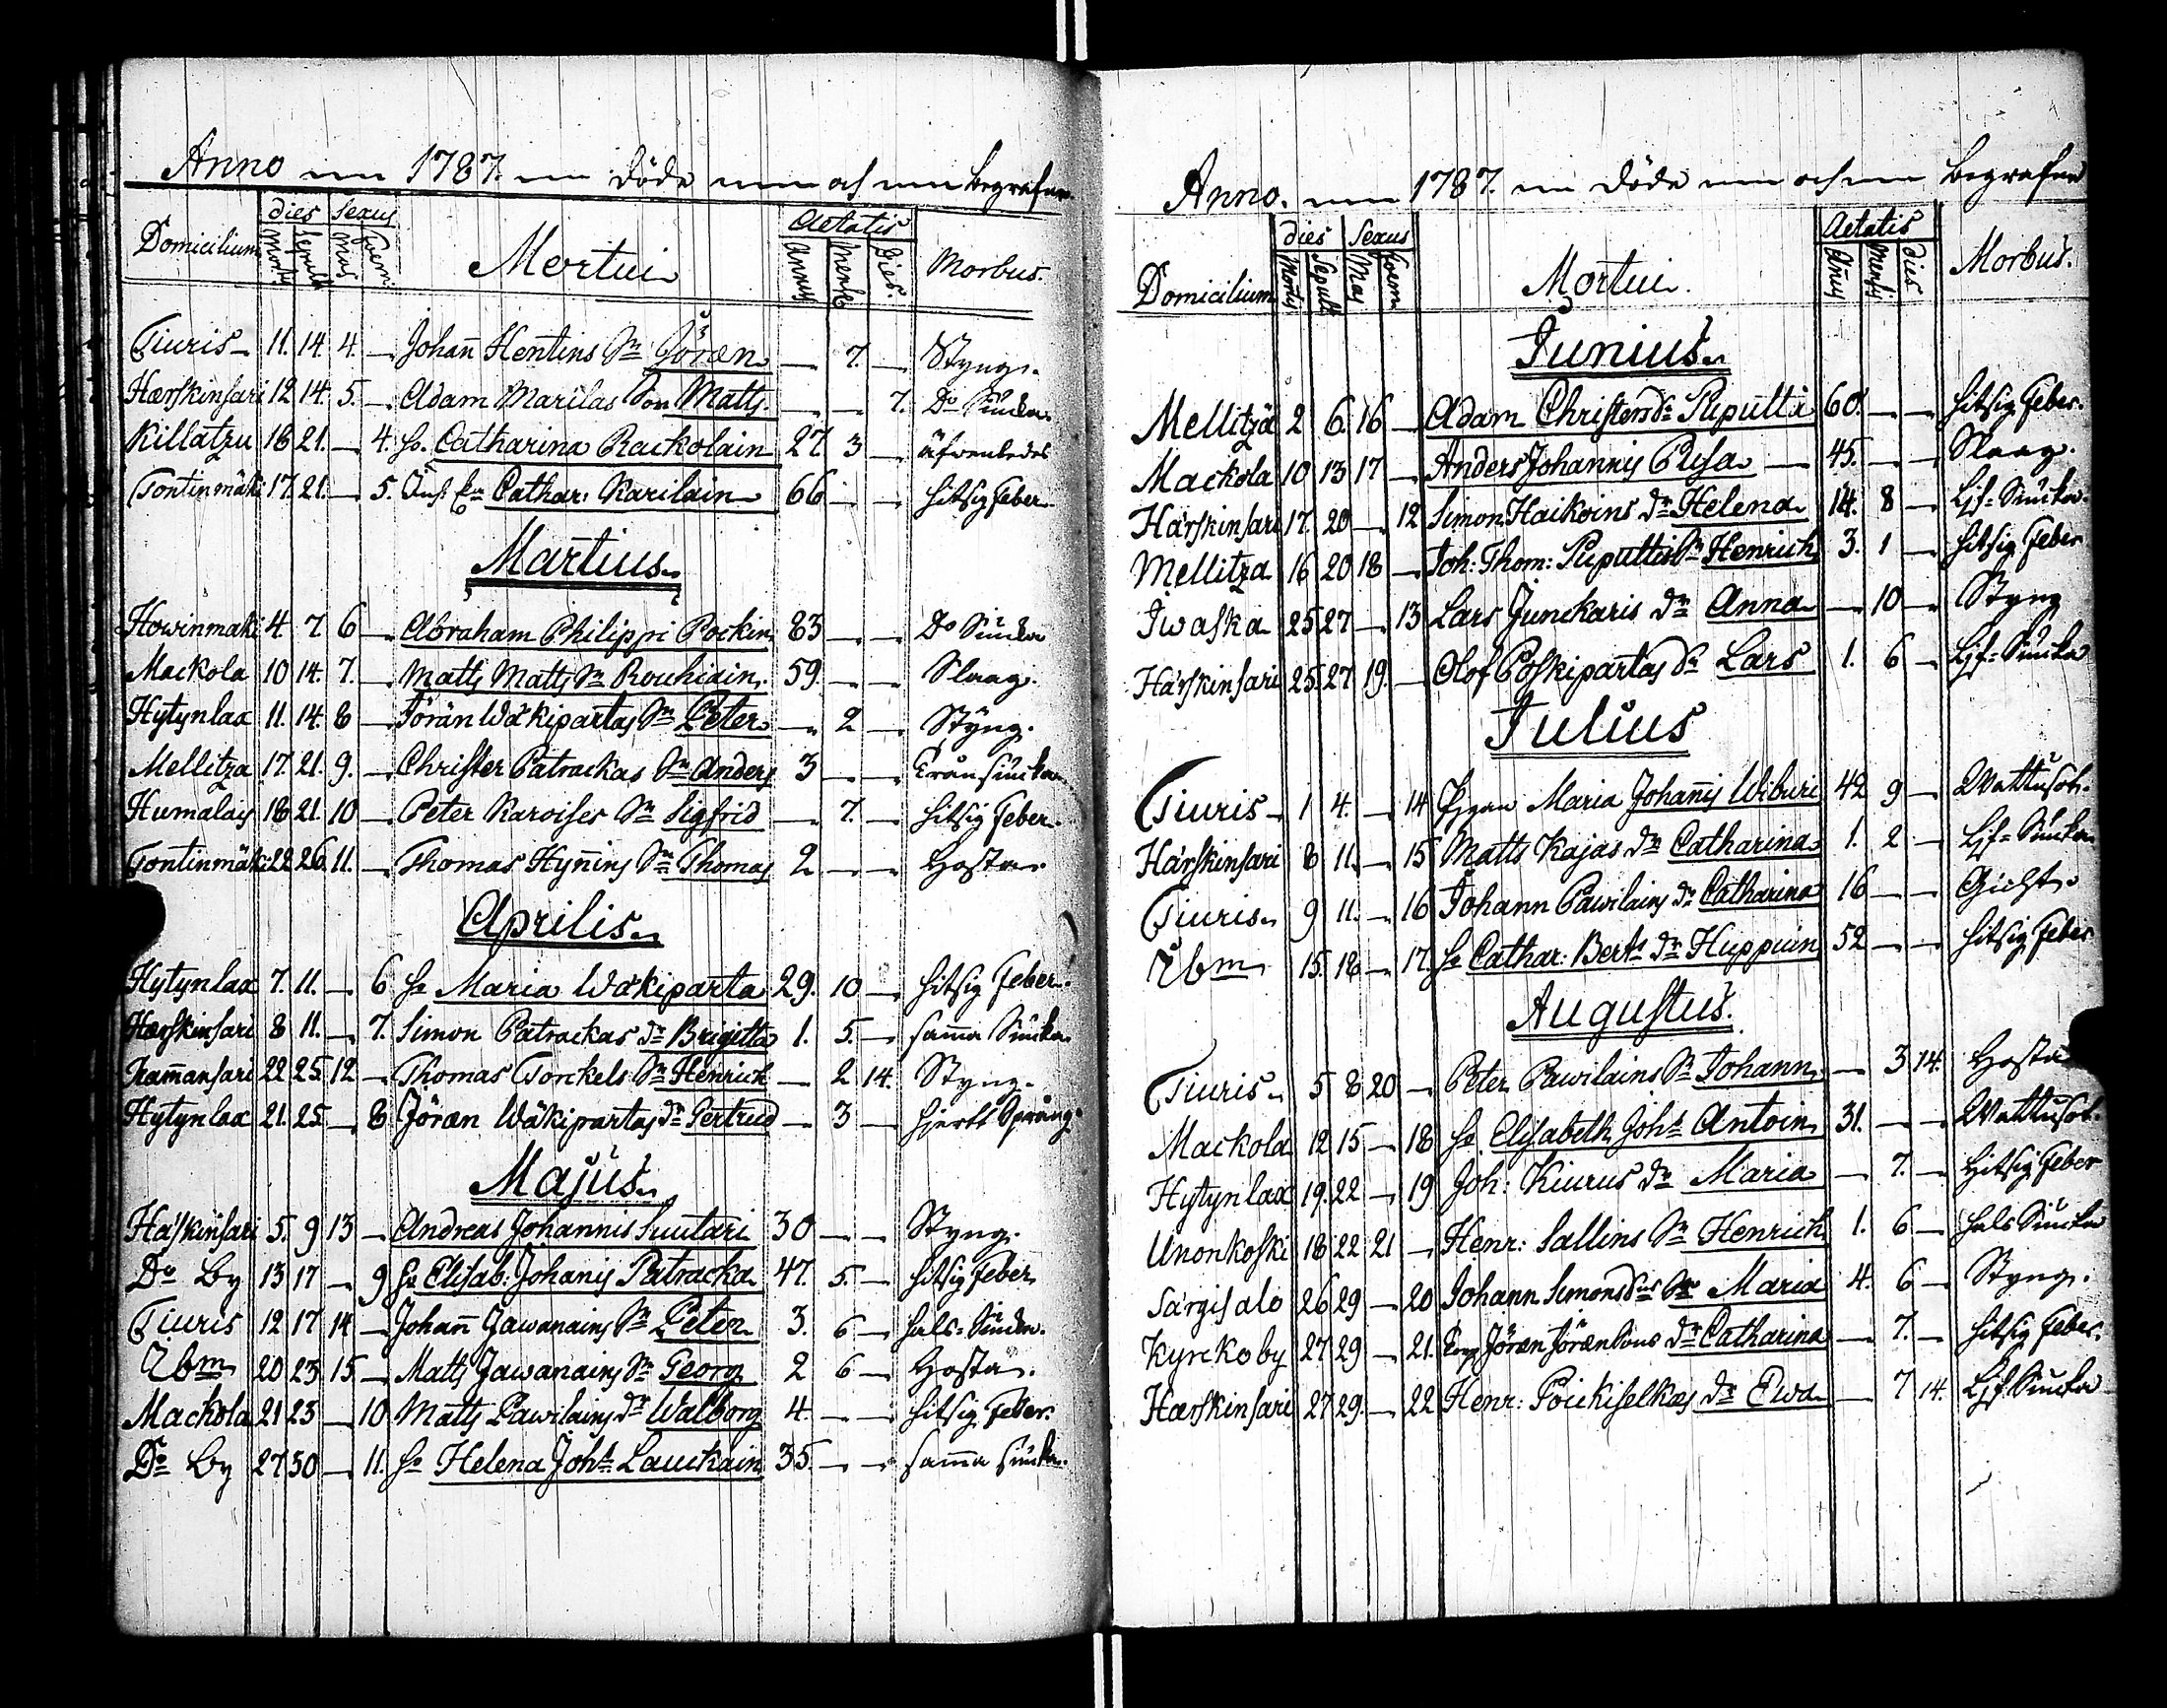 Anno 1787. Döde och begrafne.
Domicilium dies Sexus Mortui Aetatis Morbus.
Mortis Sepult Mas Foem. Annus Mens. Dies.
Tiuris 11. 14. 4. — Johan̄ Hentins Sn Jöran — 7. — Styng.
Hærskinsari 12 14. 5. — Adam Marilas Son Matts. — — 7. Do Siuka
Killatzu 18 21. — 4. h. Catharina Rackolain 27. 3 — äfwenledes
Tontinmäki 17. 21. — 5. Catharː Karilain 66 — — hitsig feber
Martius.
Howinmaki 4 7 6 — Abraham Philippi Pockin 83 — — Do Siuka
Mackola 10 14. 7. — Matts Matts Sn Rouhiain. 59. — — Slaag.
Hytynlax 11. 14. 8 — Jörän Wäkipartas Sn Peter — 2 — Styng.
Mellitza 17. 21. 9. — Christer Patrackas Sn Anders 3 — — Trånsiuka
Humalais 18 21. 10 — Peter Karoises Sn Sigfrid — 7. — hitsig feber.
Tontinmäki 22 26. 11. — Thomas Hyn̄ins Sn Thomas 2 — — Hosta
Aprilis.
Hytynlax 7. 11. — 6 h. Maria Wäkiparta 29. 10 — hitsig feber.
Hærskinsari 8 11. — 7. Simon Patrackas dr Brigitta 1. 5. — sam̄a Siuka
Ram̄ansari 22 25. 12 — Thomas Torckels Sn Henrich — 2 14. Styng.
Hytynlax 21. 25. — 8 Jöran Wäkipartas dr Gertrud — 3 — hjertt Språng.
Majus.
Häskinsari 5. 9 13 — Andreas Johannis Suutari 30 — — Styng.
Do By 13 17 — 9 h. Elisab: Johan̄is Patracka 47. 5. — hitsig feber
Tiuris 12 17 14 — Johan̄ Jawanains Sn Peter 3. 6 — hals=Siuka.
Ibm 20 23 15 — Matts Jawanains Sn Georg 2 6 — Hosta.
Mackola 21 23 — 10 Matts Pawilains dr Walborg 4. — — hitsig feber.
Do By 27 30 — 11. h. Helena Johs Lauckain 35. — — sam̄a siuka.
Anno. 1787. Döde och Begrafne
Domicilium dies Sexus Mortui. Aetatis Morbus.
Mortis Sepult Mas Foem An̄us Mens dies
Junius.
Mellitzä 2 6. 16 — Adam Christers Sn Puputti 60. — — hitsig feber.
Mackola 10 13 17 — Anders Johannis Pusa — 45. — — Slaag.
Härskinsari 17. 20 — 12 Simon Haikoins dr Helena 14. 8 — Lif=Siuka
Mellitza 16 20 18 — Joh: Thom: Puputtis Sn Henrich 3. 1 — hitsig feber
Iwaska 25 27 — 13 Lars Junckaris dr Anna — 10 — Styng
Härskinsari 25. 27 19. — Olof Poskipartas Sn Lars 1. 6 — Lif=Siuka
Julius
Tiuris 1 4. — 14 Pigan Maria Johan̄is Wiburi 42 9 — Wattusot.
Härskinsari 8 11. — 15 Matts Kajas dr Catharina 1. 2 — Lif=Siuka
Tiuris 9 11. — 16 Johann Pawilains dr Catharina 16 — — Gicht.
Ibm 15. 18 — 17. h. Cathar: Berts dr Huppuin 52 — — hitsig feber
Augustus.
Tiuris 5 8 20 — Peter Pawilains Sn Johann. — 3 14. Hosta
Mackola 12 15 — 18 h. Elisabeth Johs Antoin 31. — — Wattusot.
Hytynlax 19. 22 — 19 Joh: Kiurus dr Maria — 7. — hitsig feber
Unonkoski 18 22 21 — Henr: Sallins Sn Henrich 1. 6 — hals Siuka
Särgisalo 26 29 — 20 Johann Simons dr Maria 4. 6 — Styng.
Kyrckoby 27 29 — 21. Jöran Jöransons dr Catharina — 7. — hitsig feber.
Hærskinsari 27 29. — 22 Henr: Poickiselkas dr Ewa — 7 14. Lif Siuka